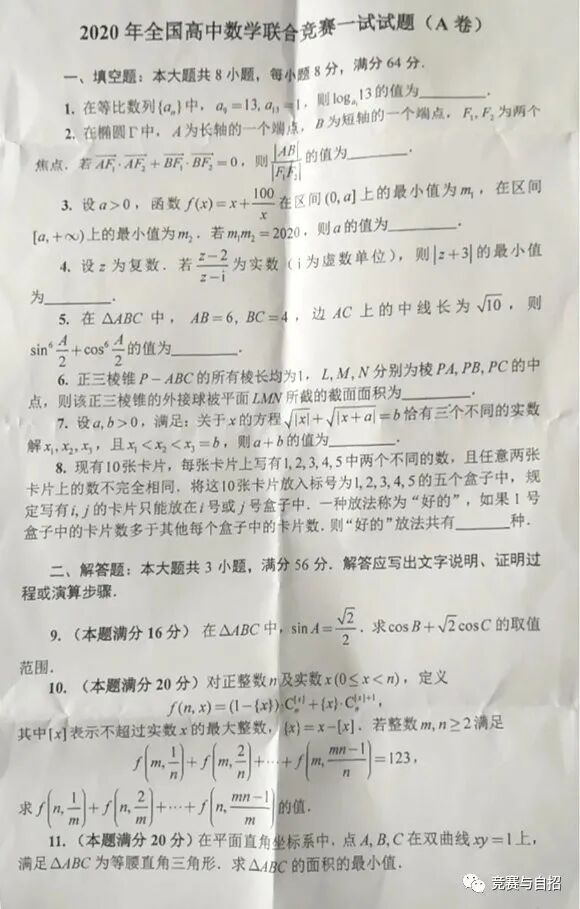 2020年全国高中数学联合竞赛一试试题（A卷）
一、填空题：本大题共8小题，每小题8分，满分64分．
1. 在等比数列{aₙ}中，a₉=13, a₁₃=1，则log_{a₁}13的值为________．
2. 在椭圆Γ中，A为长轴的一个端点，B为短轴的一个端点，F₁, F₂为两个
焦点．若AF₁·AF₂+BF₁·BF₂=0，则|AB|/|F₁F₂|的值为________．
3. 设a>0，函数f(x)=x+100/x在区间(0,a]上的最小值为m₁，在区间
[a,+∞)上的最小值为m₂．若m₁m₂=2020，则a的值为________．
4. 设z为复数．若(z-2)/(z-i)为实数（i为虚数单位），则|z+3|的最小值
为________．
5. 在ΔABC中，AB=6, BC=4，边AC上的中线长为√10，则
sin⁶(A/2)+cos⁶(A/2)的值为________．
6. 正三棱锥P-ABC的所有棱长均为1，L, M, N分别为棱PA, PB, PC的中
点，则该正三棱锥的外接球被平面LMN所截的截面面积为________．
7. 设a,b>0，满足：关于x的方程√|x|+√|x+a|=b恰有三个不同的实数
解x₁,x₂,x₃，且x₁<x₂<x₃=b，则a+b的值为________．
8. 现有10张卡片，每张卡片上写有1,2,3,4,5中两个不同的数，且任意两张
卡片上的数不完全相同．将这10张卡片放入标号为1,2,3,4,5的五个盒子中，规
定写有i, j的卡片只能放在i号或j号盒子中．一种放法称为“好的”，如果1号
盒子中的卡片数多于其他每个盒子中的卡片数．则“好的”放法共有________种．
二、解答题：本大题共3小题，满分56分．解答应写出文字说明、证明过
程或演算步骤．
9.（本题满分16分）在ΔABC中，sin A=√2/2．求cos B+√2cos C的取值
范围．
10.（本题满分20分）对正整数n及实数x(0≤x<n)，定义
f(n,x)=(1-{x})·Cₙ^[x]+{x}·Cₙ^([x]+1)，
其中[x]表示不超过实数x的最大整数，{x}=x-[x]．若整数m,n≥2满足
f(m,1/n)+f(m,2/n)+⋯+f(m,(mn-1)/n)=123，
求f(n,1/m)+f(n,2/m)+⋯+f(n,(mn-1)/m)的值．
11.（本题满分20分）在平面直角坐标系中，点A,B,C在双曲线xy=1上，
满足ΔABC为等腰直角三角形．求ΔABC的面积的最小值．
竞赛与自招